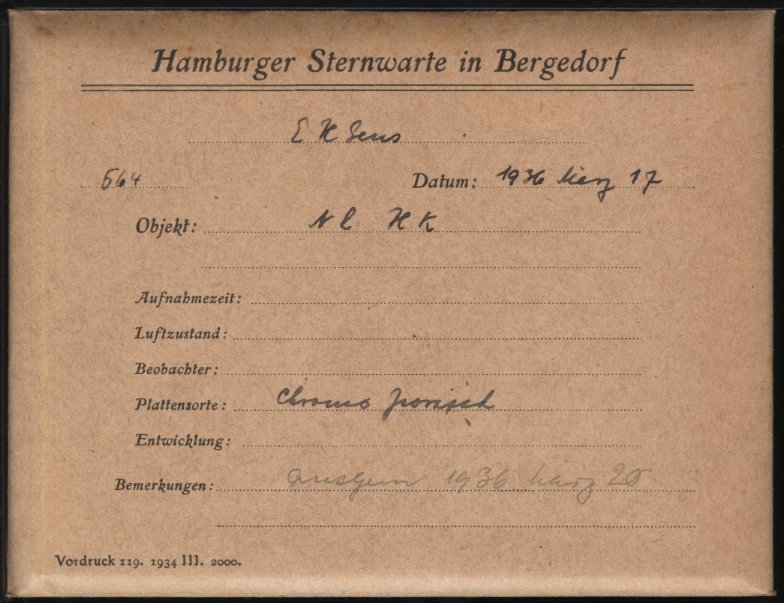 Hamburger Sternwarte in Bergedorf
E K
564 Datum: 1936 März 17
Objekt: N
Aufnahmezeit:
Luftzustand:
Beobachter:
Plattensorte: Chromo
Entwicklung:
Bemerkungen: ausgem 1936 März 25
Vordruck 119. 1934 III. 2000.